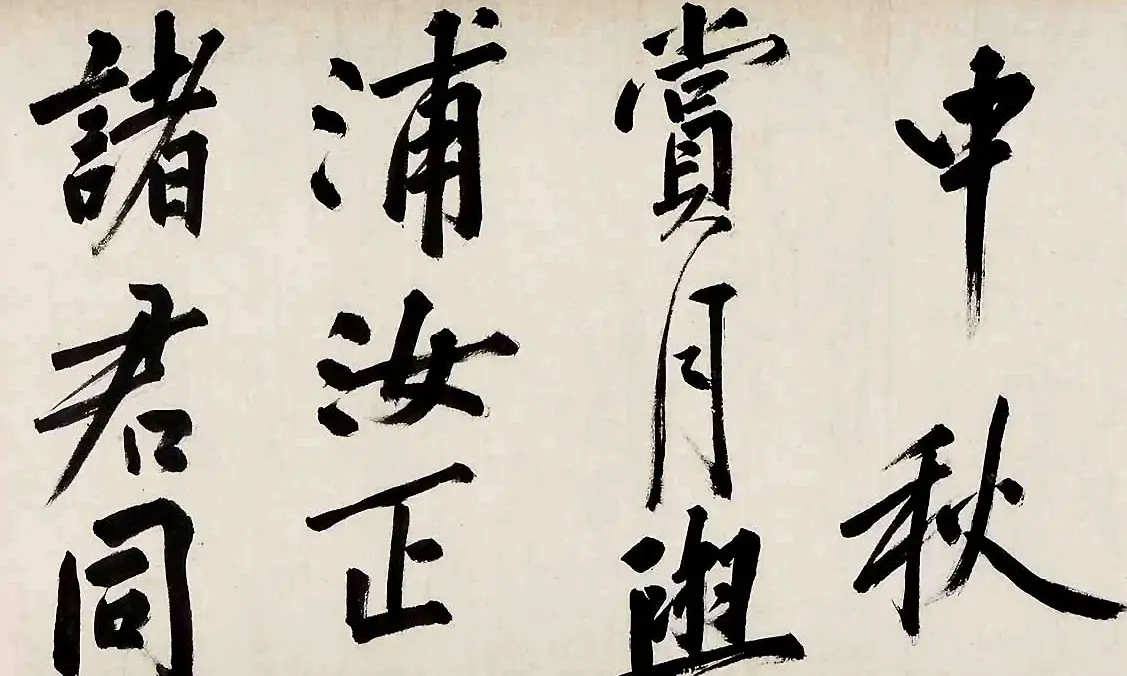 中秋
賞月與
浦汝正
諸君同